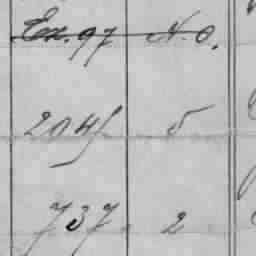 Ex. 97 N. O.
204 5
737 2